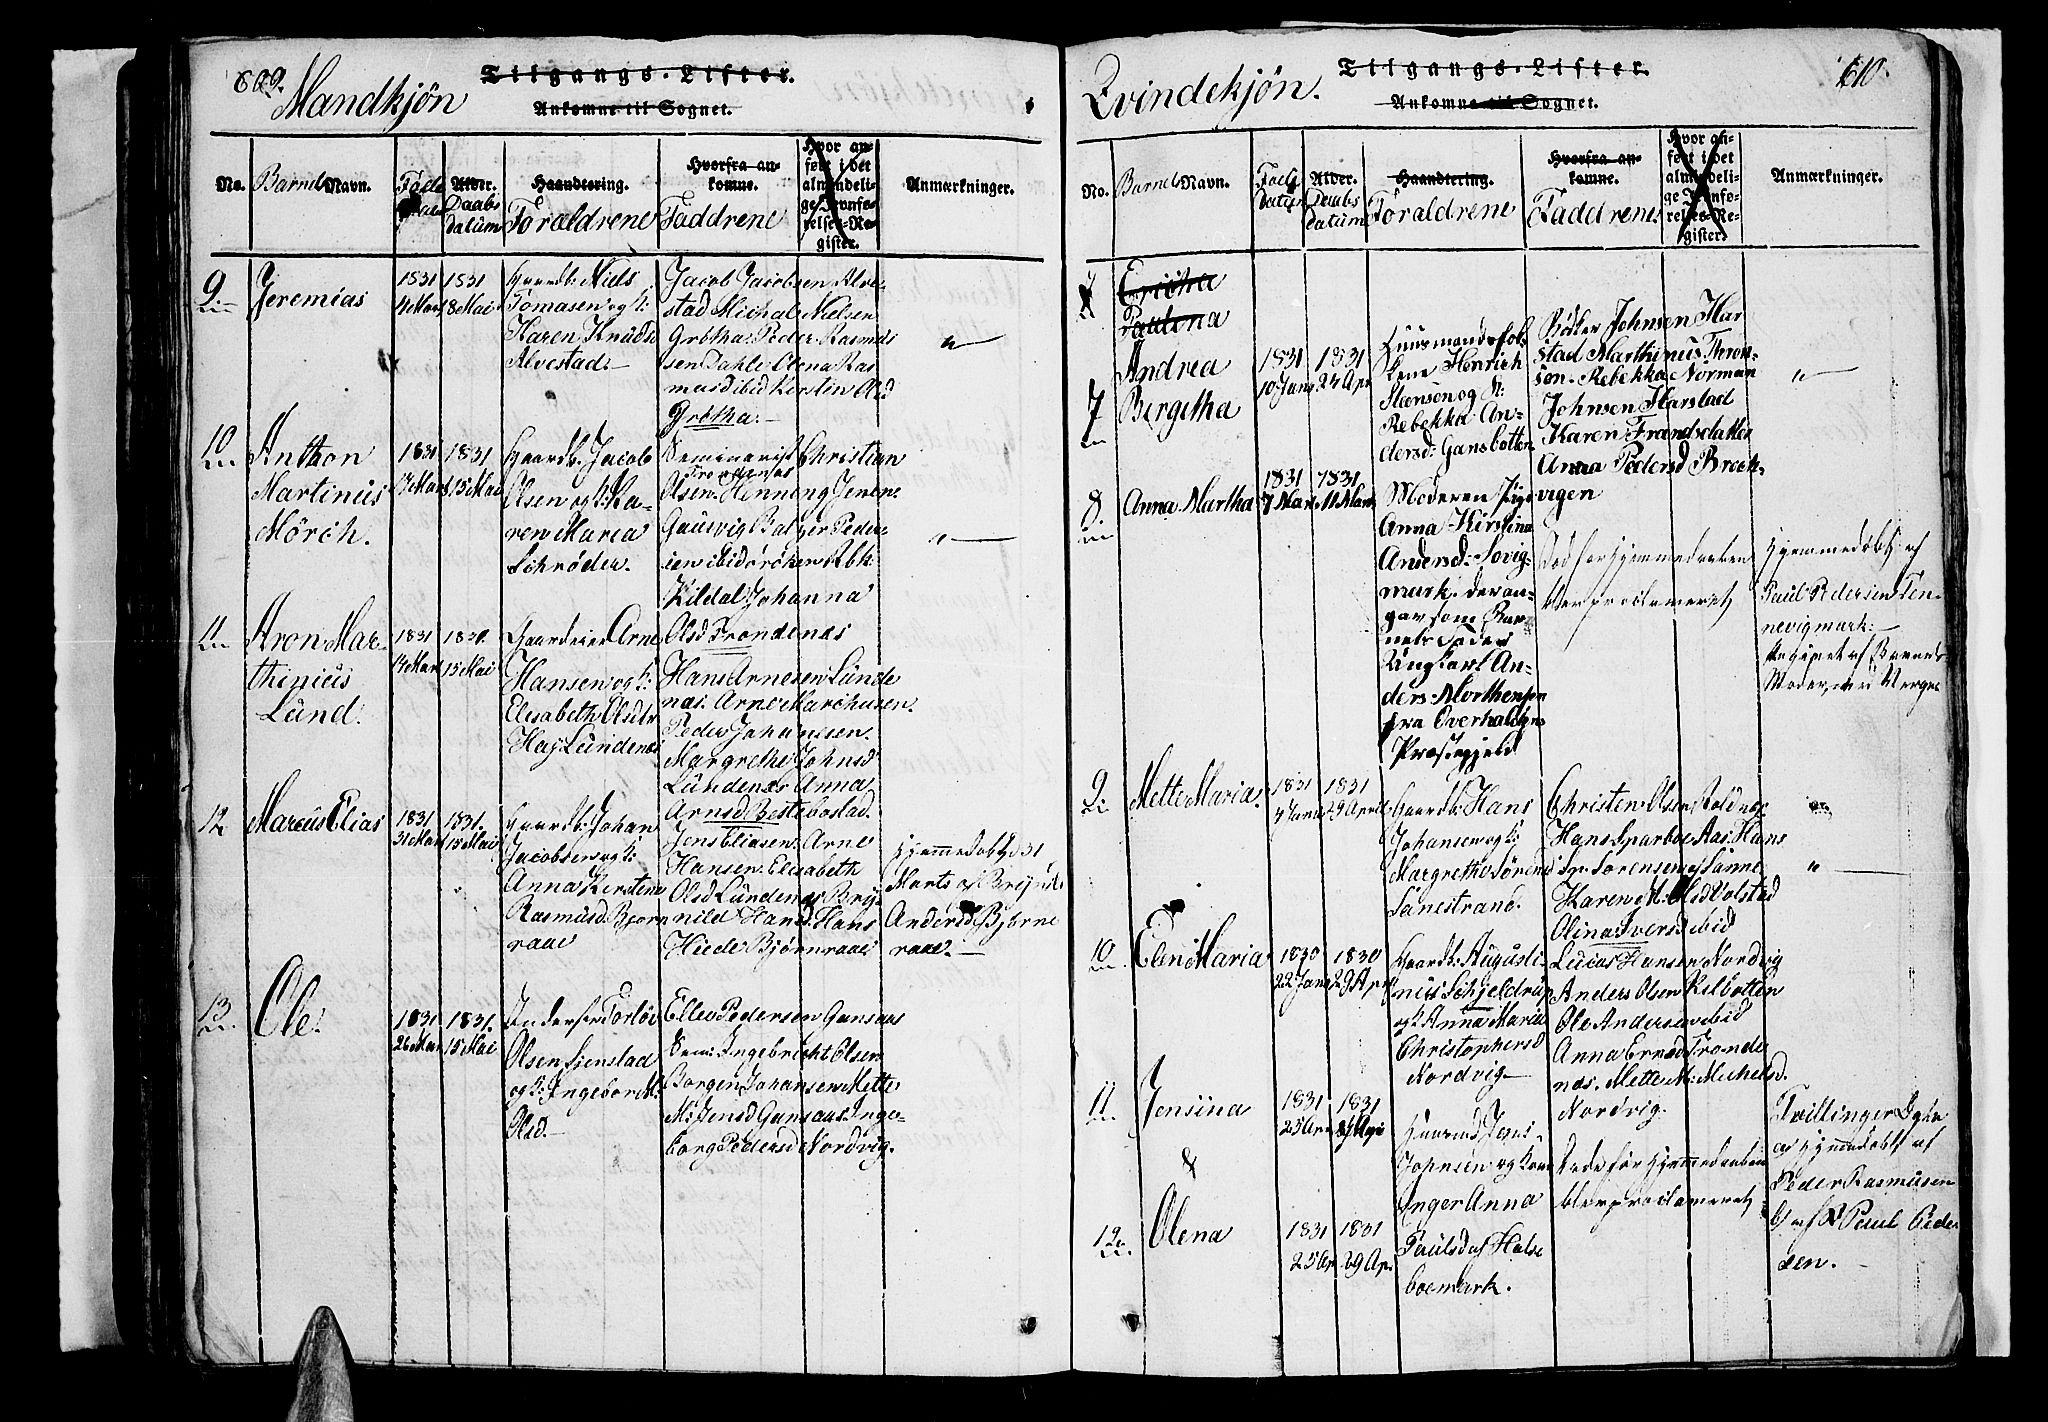 609.
Mandkjön
Tilgangs-Lister.
Ankomne til Sognet.
No.
Barnets Navn.
Føds
Datum
Alder.
Daabs
datum
Haandtering.
Foraldrene
Hvorfra an-
komne.
Faddrene
Hvor an-
ført i det
almindeli-
ge Jevnfø-
relses-Re-
gister.
Anmærkninger.
9.
Jeremias
1831
4 Mars
1831
8 Mai
Gaardb: Niels
Tomasen og k:
Karen Knuds
Alvestad.
Jacob Jacobsen Alve-
stad Michal Nielsen
Grötha. Peder Rasmus
sen Dahle Olena Ras
musd ibid Kersten Olsd
Grötha.
"
10
Anthon
Martinus
Mörch.
1831
14 Mars
1831
15 Mai
Gaardb. Jacob
Olsen og k: Ka-
ren Maria
Schröder.
Seminarist Christian
Trondenæs
Olsen. Henning Jenene
Gausvig Baltzer Peder-
sen ibid
Kildal Johanna
Olsd Trondenæs
"
11
Aron Mar-
thinius
Lund.
1831
14 Mars
1831
15 Mai
Gaardeier Arne
Hansen og k:
Elisabeth Olsdtr
Hay Lundenæs
Hans Arnesen Lunde
næs. Arne Marchusen.
Peder Johannesen.
Margrethe Johnsd
Lundenæs Anna
Arnsd Bestebostad.
12
Marcus Elias
1831
31 Mars
1831.
15 Mai
Gaardb: Johan
Jacobsen og k:
Anna Kerstene
Rasmusd. Bjorn
raae
Jens Eliasen. Arne
Hansen. Elisabeth
Olsd Lundenæs Bry-
nild Hansd. Hans
Hiede Bjørnraae
Hjemmedöbt 31
Marts af Brynild
Andersd. Bjørne
raae.
13.
Ole.
1831
26 Mars
1831.
15 Mai
Olsen Lienstad
og k: Ingebor M:
Olsd.
Ellev Pedersen Gansaas
Sem: Ingebricht Olsen
Borgen Johansen Mette
M: Jensd Gansaas. Inge-
borg Pedersd Nordvig.
Qvindekjön.
Tilgangs-Lister.
Ankomne til Sognet.
610.
No.
Barnets Navn.
Føds
Datum
Alder.
Daabs
datum
Haandtering.
Foraldrene
Hvorfra an-
komne.
Faddrene
Hvor an-
ført i det
almindeli-
ge Jevnfø-
relses-Re-
gister.
Anmærkninger.
7
Ericha
Paulina
7
Andrea
Bergitha
1831
10 Janu
1831
24 Apr
Huusmandsfol-
kene Henrich
Steensen og k:
Rebekka An-
dersd: Gansbotten
Johnsen Har
stad Marthinus Thron-
sen. Rebekka Norman
Johnsen Harstad
Karen Frandsdatter
Anna Pedersd Brok-
vigen
"
8.
Anna Martha
1831
7 Mar.
1831
11 Mars
Moderen Pige
Anna Kirstina
Andersd: Sovig-
mark. der an-
gav som Bar-
nets Fader
Ungkarl An-
ders Morthensen
fra Overhaldens
Præstegjeld
Död før Hjemmedaaben
blev proclameret
Hjemmedöbt af
Paul Pedersen Ten-
nevigmark:
af Barnets
Moder,
9.
Mette Maria.
1831
4 Janu
1831
29 April
Gaardb: Hans
Johansen og k:
Margrethe Sörens
Sanestrand.
Christen Olsen Voldnæs
Hans Sparboe Aas. Hans
Sr Sorensen af Sanne
Karen M: Olsd Volstad
Olina Iversd ibid
"
10
Elen Maria
1830
22 Janu
1830
29 Apr
Gaardb: Augusti-
nus Schjeldrup
og k: Anna Maria
Christophersd
Nordvig
Lucas Hansen Nordvig
Anders Olsen Kilbotten
Ole Andersen ibid
Anna Ernsd Tronde
næs. Mette M: Michelsd.
Nordvig.
11
Jensina
1831
25 Apr
1831
&
Huusmd Jens
Johnsen og kone
Inger Anna
Paulsd af Halse
boemark.
Döde før Hjemmedaaben
blev proclameret
Tvillinger Døtre
a) Hjemmedöbt af
Peder Rasmusen
b) af Paul Peder
sen.
12
Olena
1831
25 Apr
1831
29 Ap.